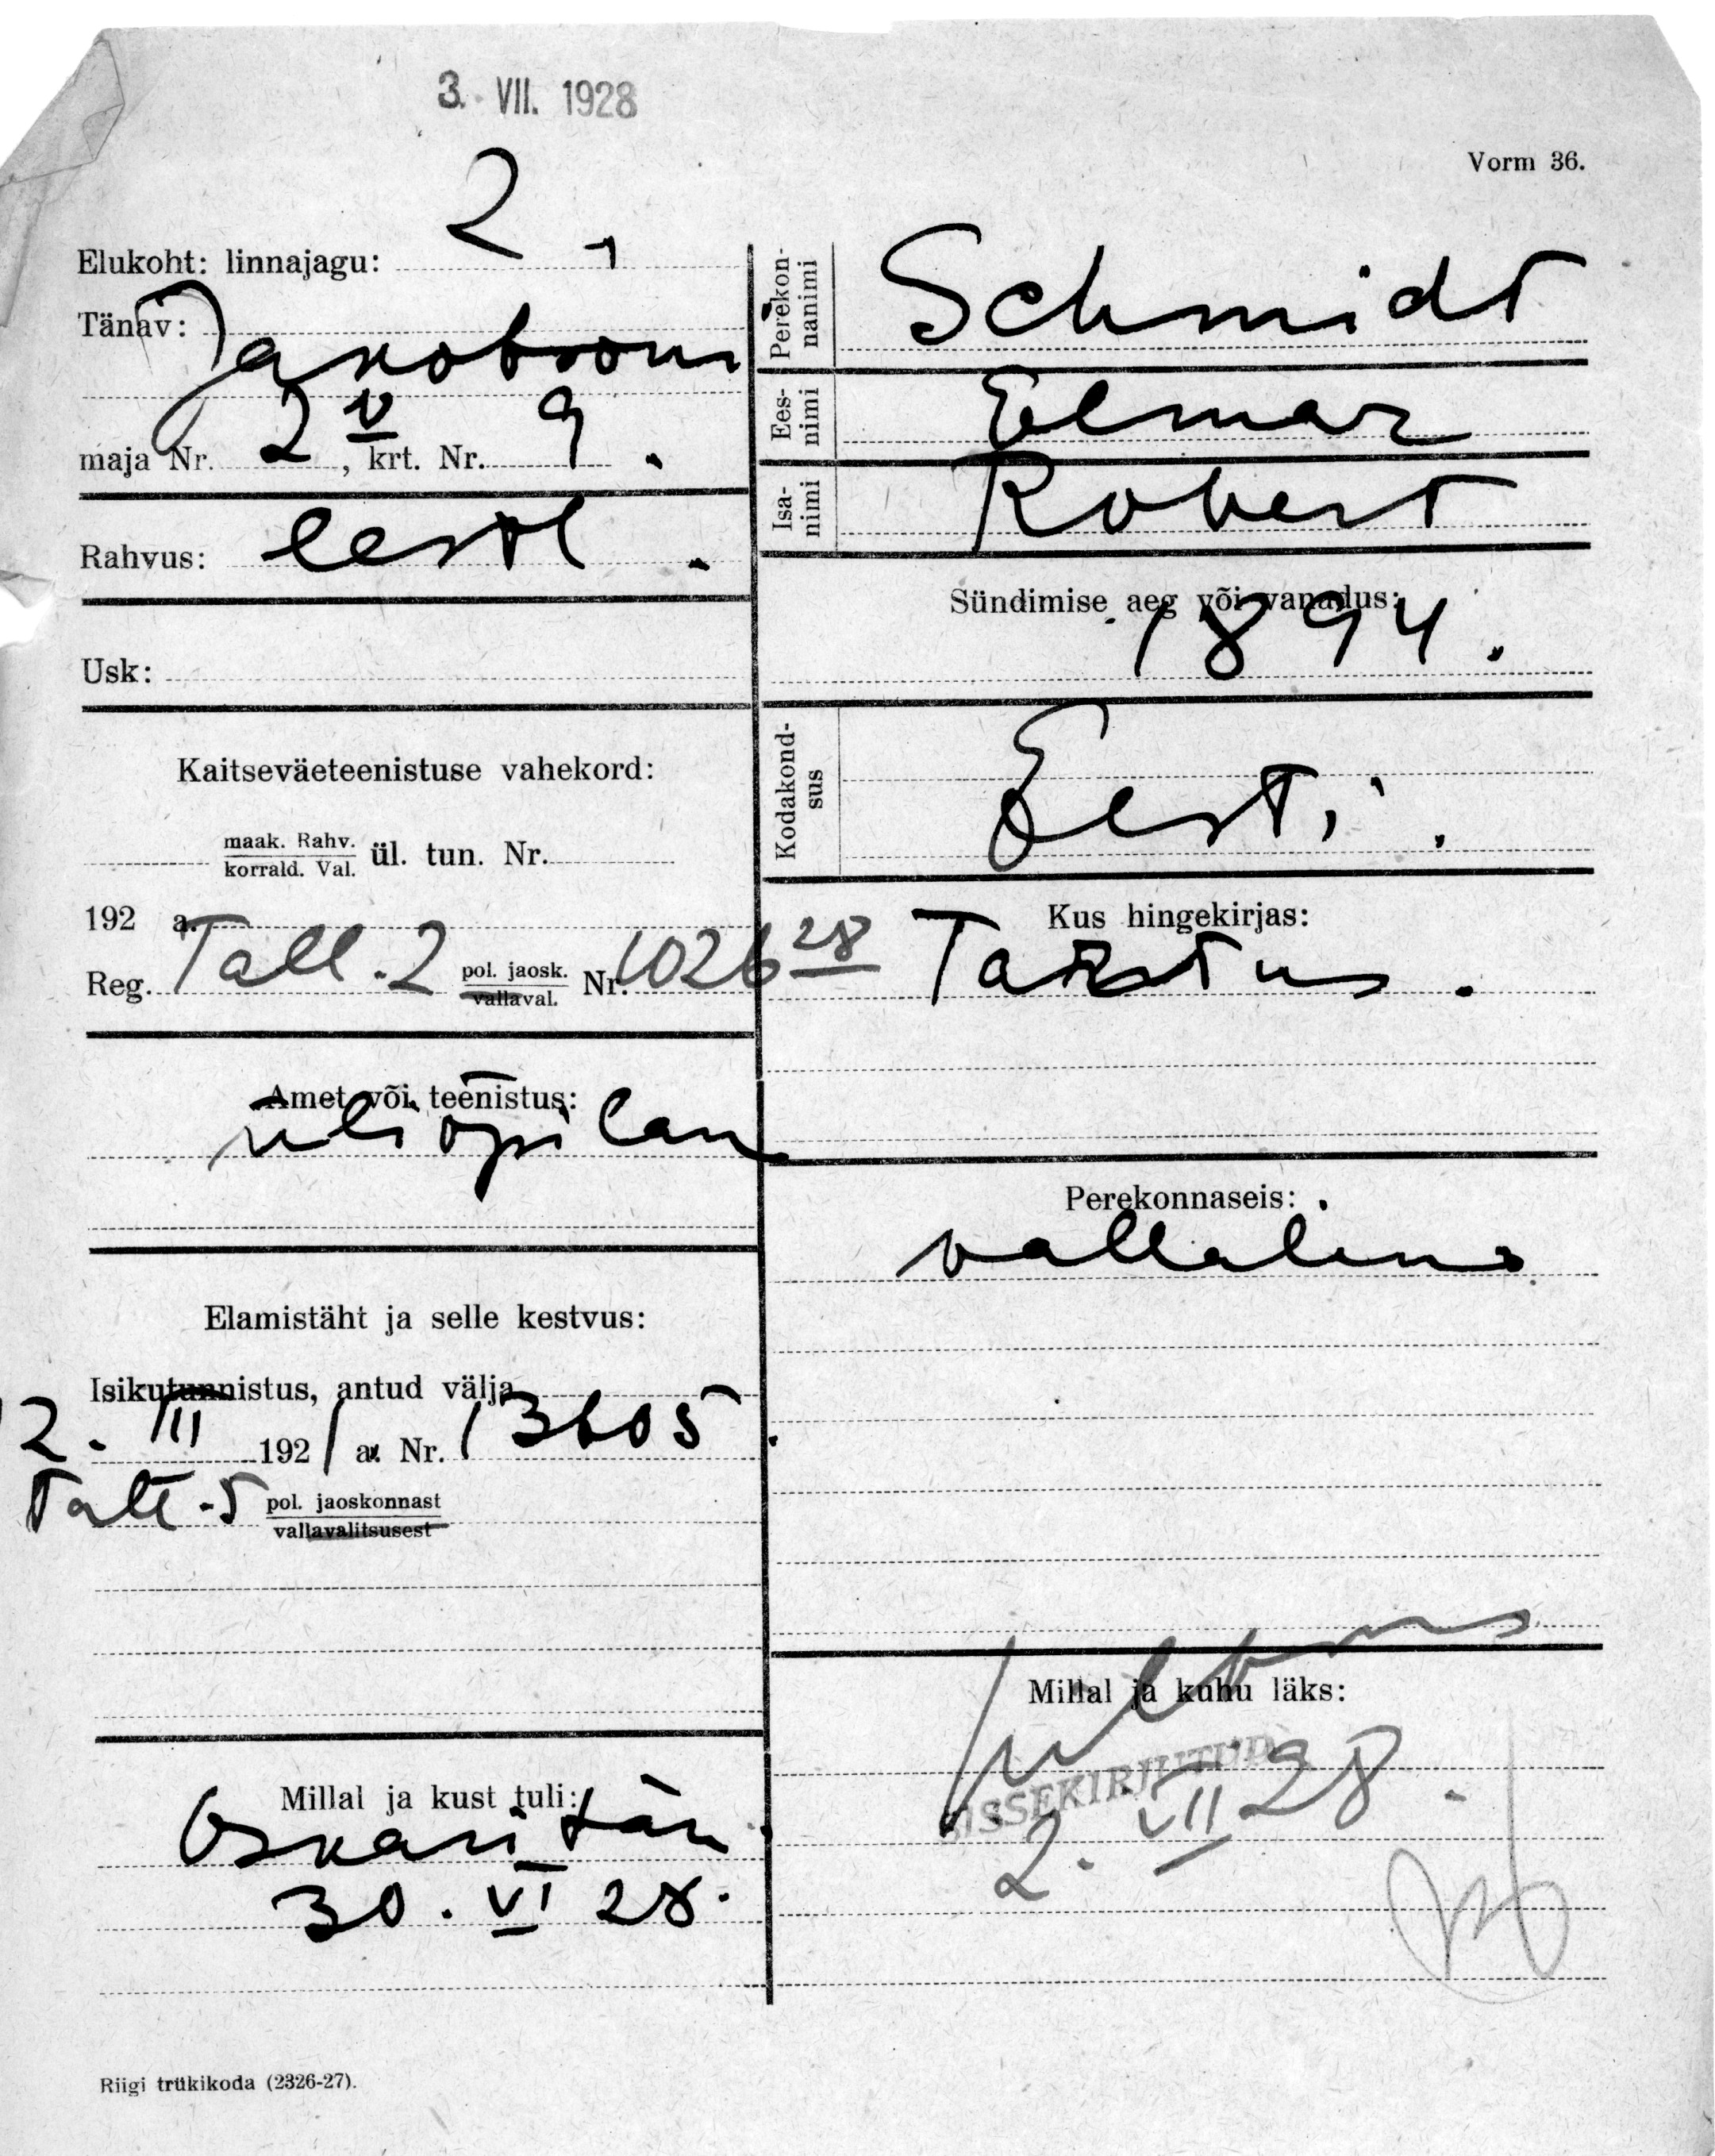 3. VII. 1928
Vorm 36.
Elukoht: linnajagu: 2,
Tänav: Jakobsoni
maja Nr. 2 v, krt. Nr. 9.
Rahvus: eestl.
Usk:
Kaitseväeteenistuse vahekord:
maak. Rahv.
korrald. Val.
ül. tun. Nr.
192 a.
Reg. Tall. 2 pol. jaosk. Nr. 1026 28
vallaval.
Amet või teenistus:
üliõpilan
Elamistäht ja selle kestvus:
Isikutunnistus, antud välja
2. III 1921 a. Nr. 13605.
Tall-5 pol. jaoskonnast
vallavalitsusest
Millal ja kust tuli:
Oskari tän.
30. VI 28.
Perekon-
nanimi
Schmidt
Ees-
nimi
Elmar
Isa-
nimi
Robert
Sündimise aeg või vanadus:
1894.
Kodakond-
sus
Eesti.
Kus hingekirjas:
Tarvastus.
Perekonnaseis:
vallaline
Millal ja kuhu läks:
SISSEKIRJUTUD
2. VII 28.
Riigi trükikoda (2326-27).